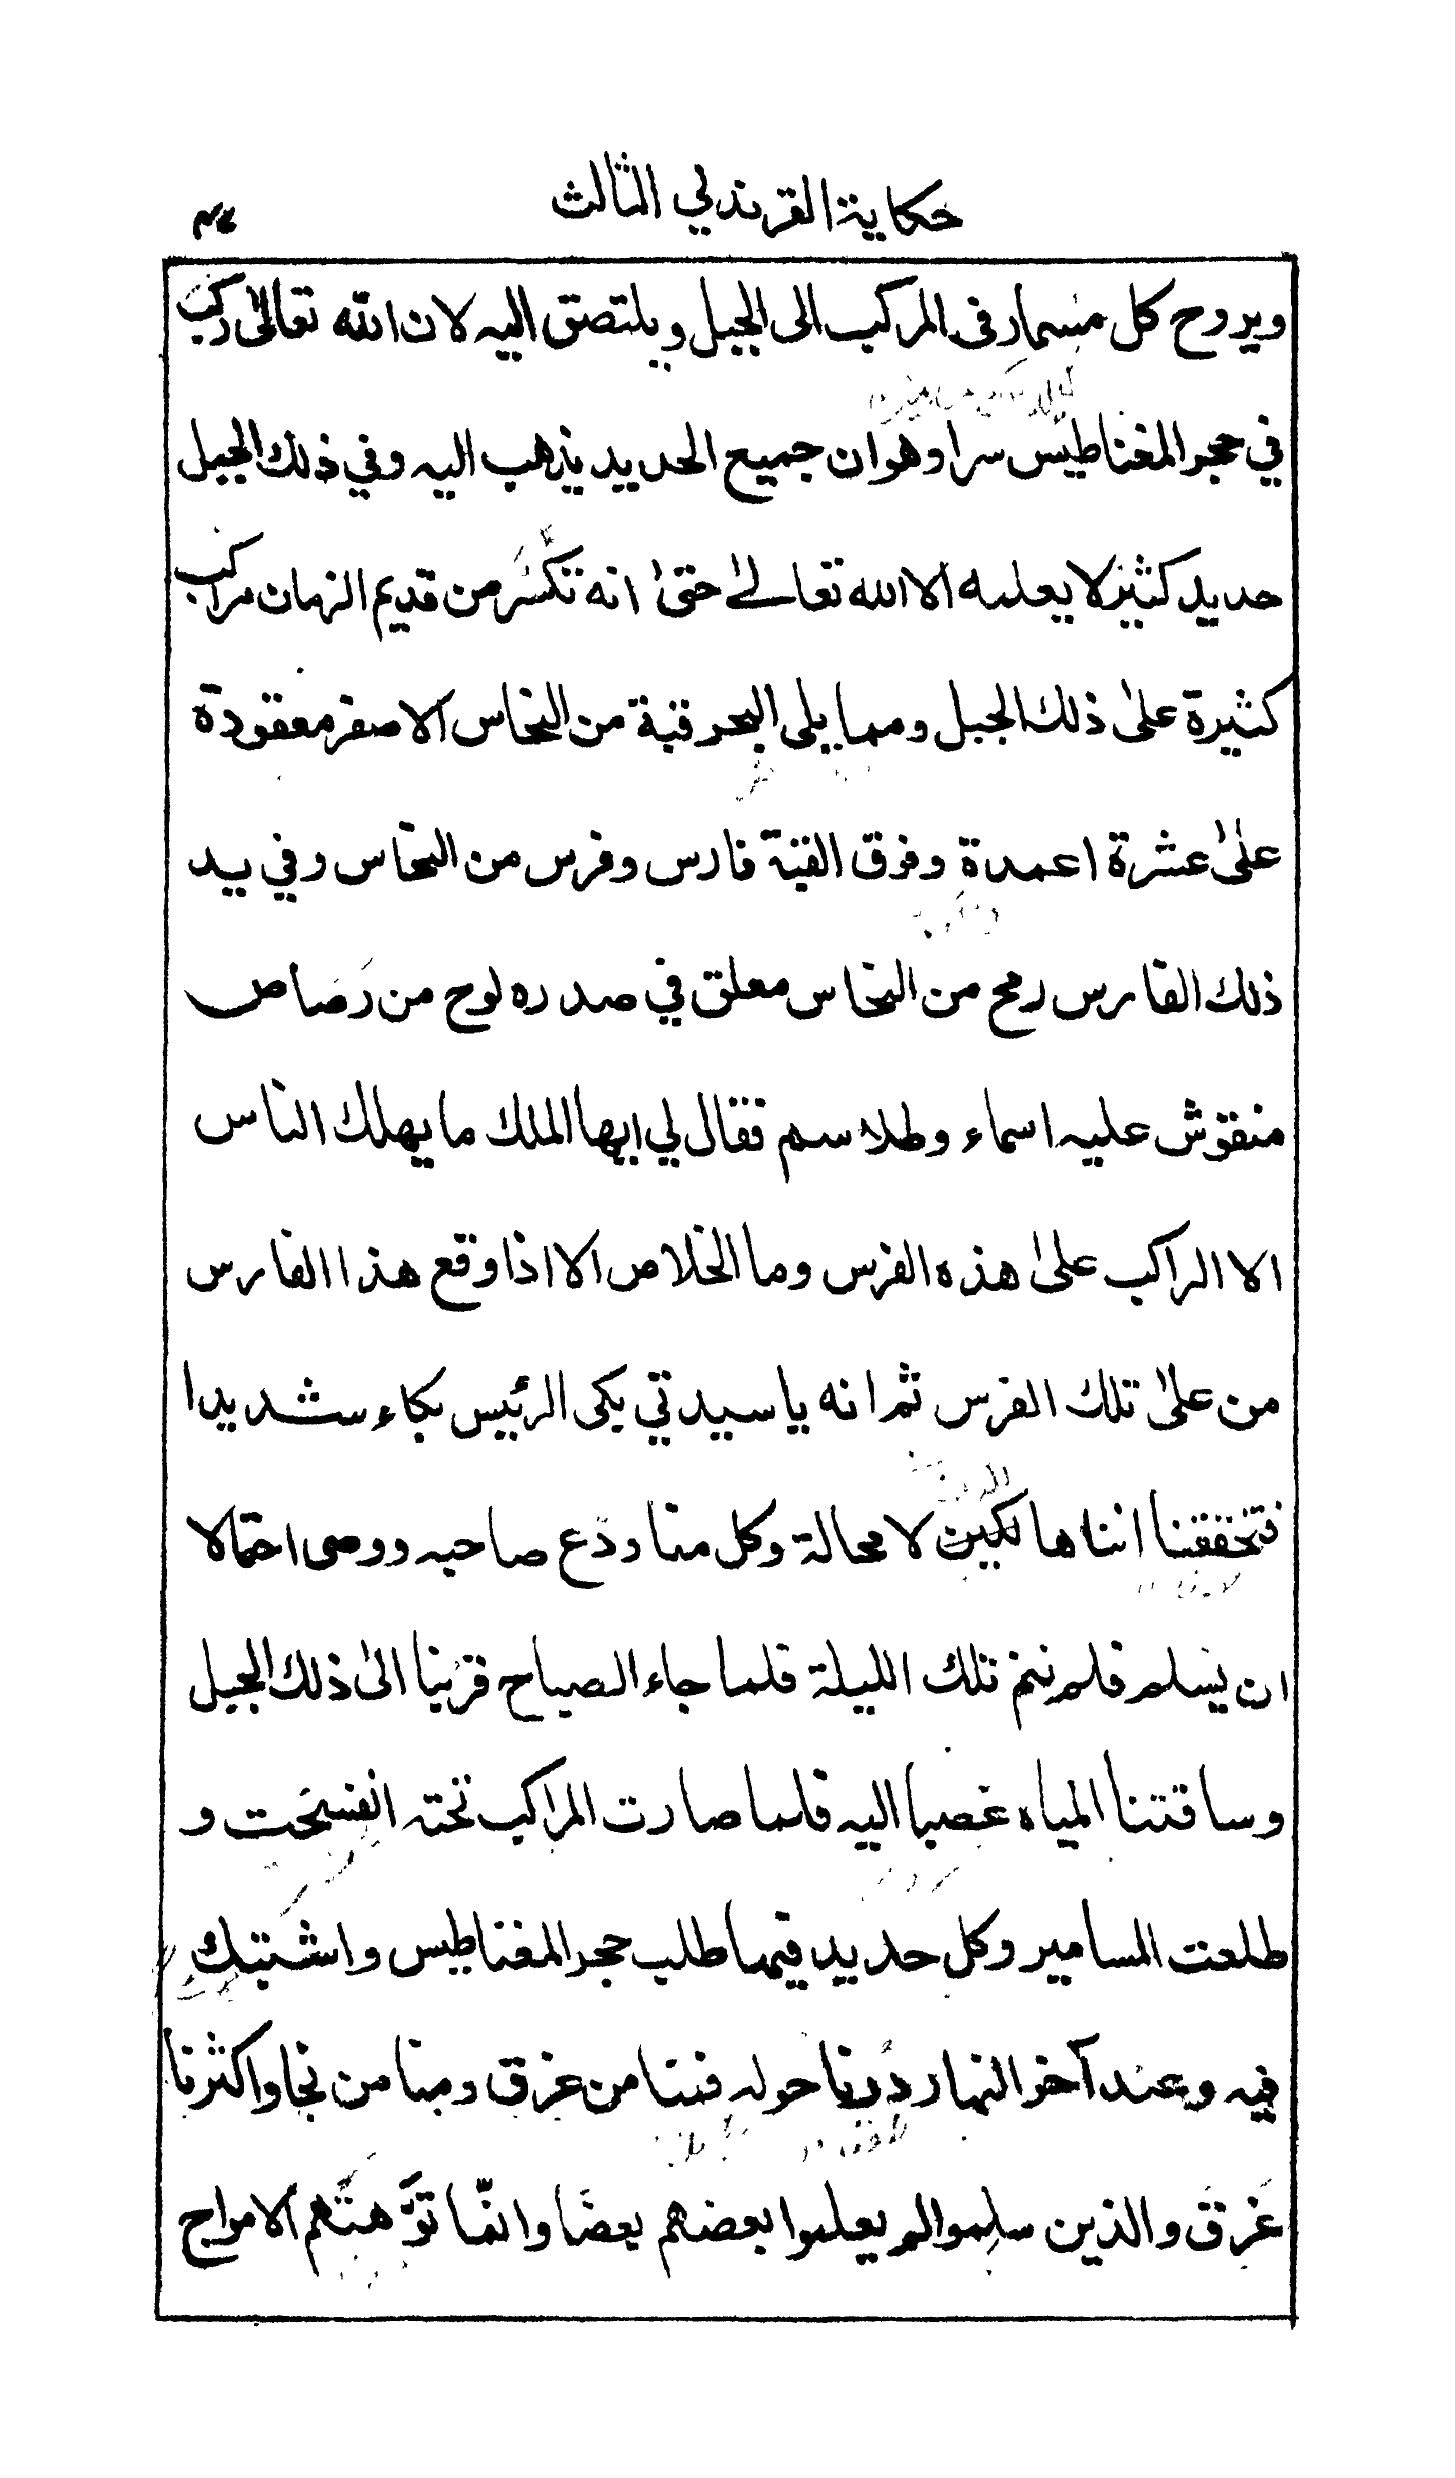 حكاية القرندلي الثالث
ويروح كل مسمار في المركب الى الجبل ويلتصق اليه لان الله تعالى ركب
في حجر المغناطيس سرا وهو ان جميع الحديد يذهب اليه وفي ذلك الجبل
حديد كثير لا يعلمه الا الله تعالى حتى انه تكسر من قديم الزمان مراكب
كثيرة على ذلك الجبل ومما يلى البحر قبة من النحاس الاصفر معقودة
على عشرة اعمدة وفوق القبة فارس وفرس من النحاس وفي يد
ذلك الفارس رمح من النحاس معلق في صدره لوح من رصاص
منقوش عليه اسماء وطلاسم فقال لي ايها الملك ما يهلك الناس
الا الراكب على هذه الفرس وما الخلاص الا اذا وقع هذا الفارس
من على تلك الفرس ثم انه يا سيدتي بكى الرئيس بكاء شديدا
فتحققنا اننا هالكين لا محالة وكل منا ودع صاحبه ووصى احتمالا
ان يسلم فلم ننم تلك الليلة فلما جاء الصباح قربنا الى ذلك الجبل
وساقتنا المياه غصبا اليه فلما صارت المراكب تحته انفسخت و
طلعت المسامير وكل حديد فيها طلب حجر المغناطيس واشتبك
فيه وعند آخر النهار درنا حوله فمنا من غرق ومنا من نجا واكثرنا
غرق والذين سلموا لم يعلموا بعضهم بعضا وانما توهتهم الامواج